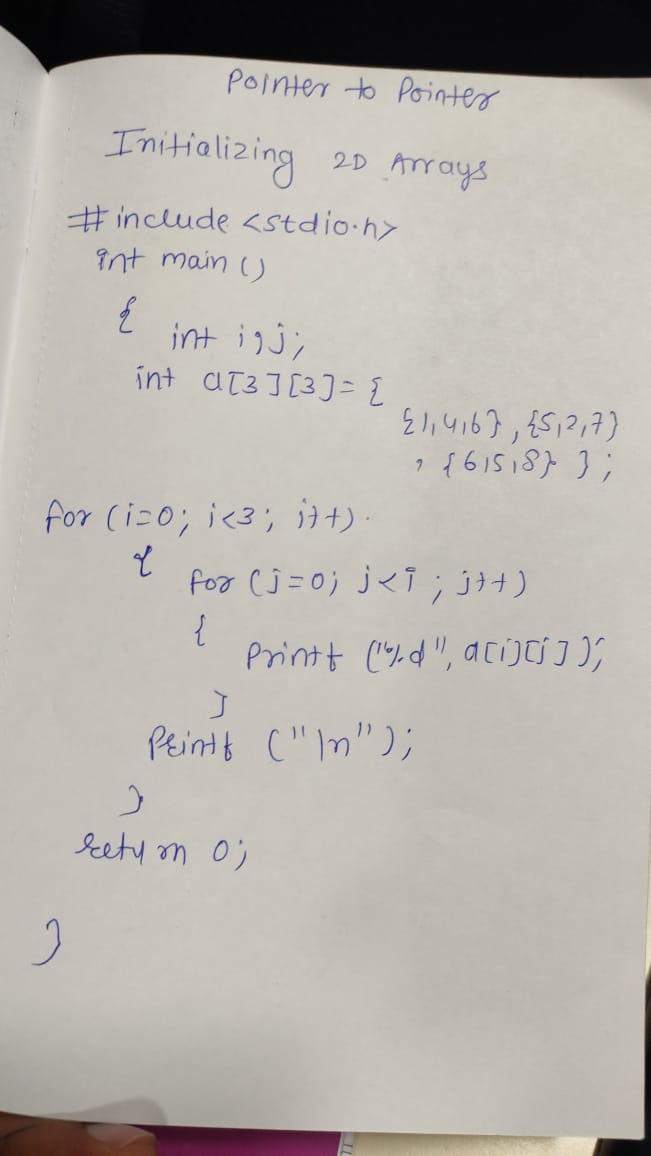 Pointer to Pointer
Initializing 2D Arrays
#include <stdio.h>
int main ()
{ int i,j;
int a[3][3]= {
{1,4,6}, {5,2,7}
, {6,5,8} };
for (i=0; i<3; i++)
{ for (j=0; j<i; j++)
{ printf ("%d", a[i][j]);
}
printf ("\n");
}
return 0;
}